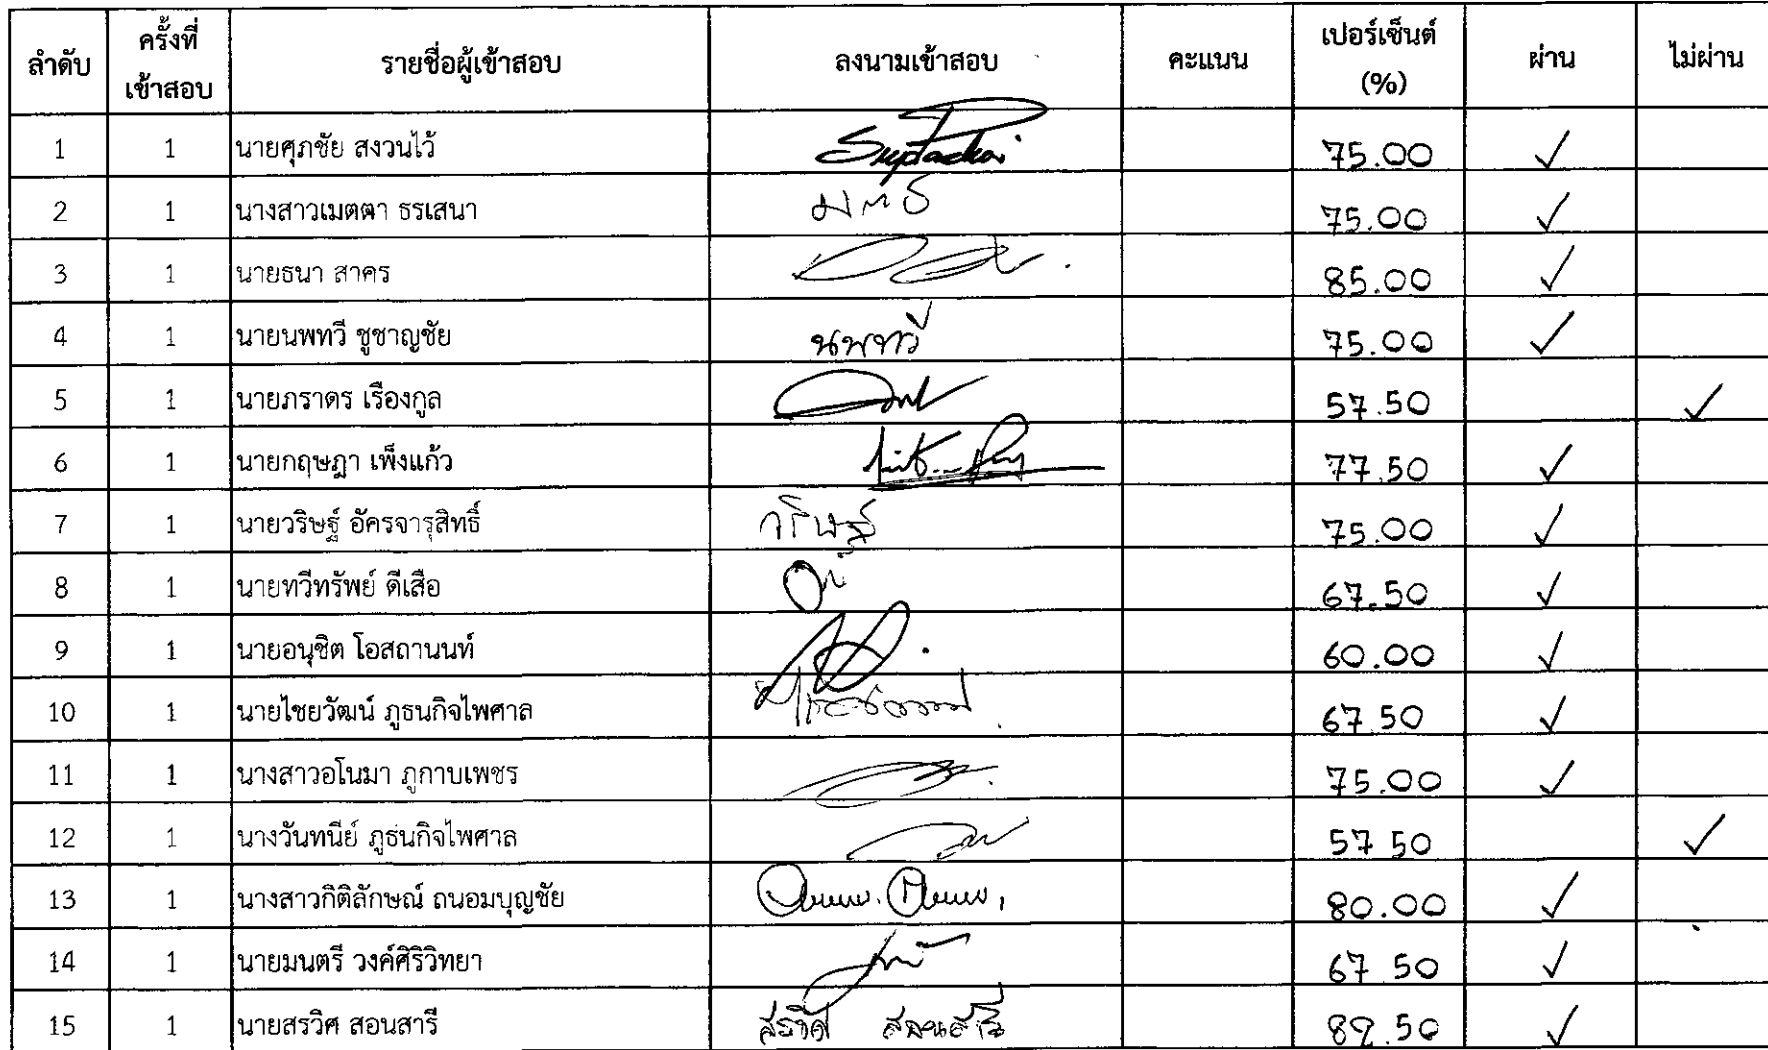 ลำดับ ครั้งที่เข้าสอบ รายชื่อผู้เข้าสอบ ลงนามเข้าสอบ คะแนน เปอร์เซ็นต์ (%) ผ่าน ไม่ผ่าน
1 1 นายศุภชัย สงวนไว้ 75.00 ✓
2 1 นางสาวเมตตา ธรเสนา 75.00 ✓
3 1 นายธนา สาคร 85.00 ✓
4 1 นายนพทวี ชูชาญชัย นพทวี 75.00 ✓
5 1 นายภราดร เรืองกูล 57.50 ✓
6 1 นายกฤษฎา เพ็งแก้ว 77.50 ✓
7 1 นายวริษฐ์ อัครจารุสิทธิ์ วริษฐ์ 75.00 ✓
8 1 นายทวีทรัพย์ ดีเสือ 67.50 ✓
9 1 นายอนุชิต โอสถานนท์ 60.00 ✓
10 1 นายไชยวัฒน์ ภูธนกิจไพศาล 67.50 ✓
11 1 นางสาวอโนมา ภูกาบเพชร 75.00 ✓
12 1 นางวันทนีย์ ภูธนกิจไพศาล 57.50 ✓
13 1 นางสาวกิติลักษณ์ ถนอมบุญชัย 80.00 ✓
14 1 นายมนตรี วงค์ศิริวิทยา 67.50 ✓
15 1 นายสรวิศ สอนสารี สรวิศ สอนสารี 82.50 ✓